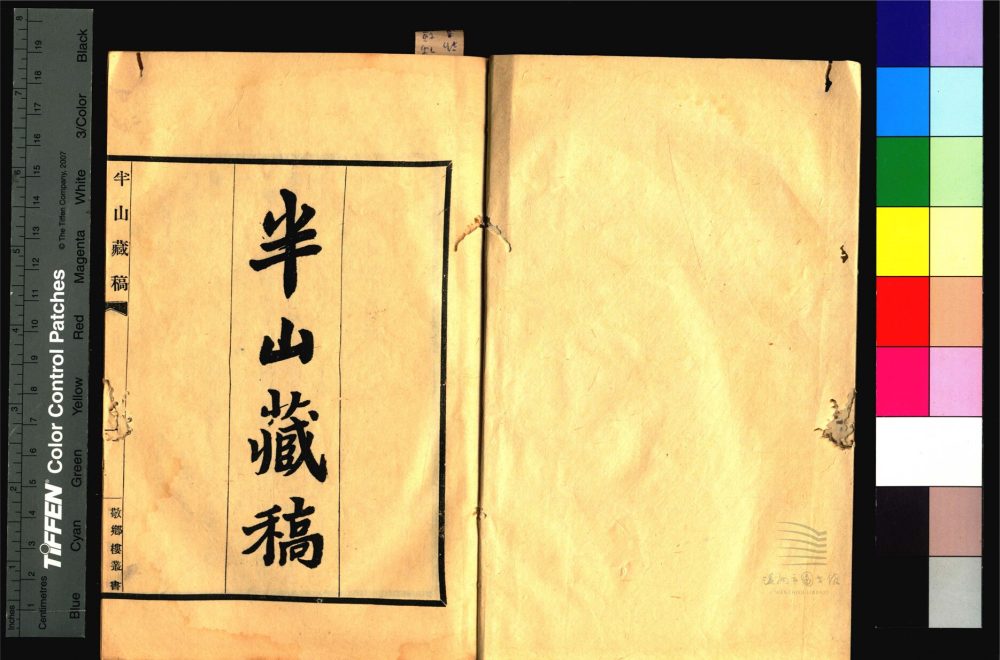 半山藏稿
半山藏稿
敬鄉樓叢書
温州市圖書館
WENZHOU LIBRARY
TIFFEN® Color Control Patches
© The Tiffen Company, 2007
Inches
1 2 3 4 5 6 7 8
Centimetres
1 2 3 4 5 6 7 8 9 10 11 12 13 14 15 16 17 18 19
Blue Cyan Green Yellow Red Magenta White 3/Color Black